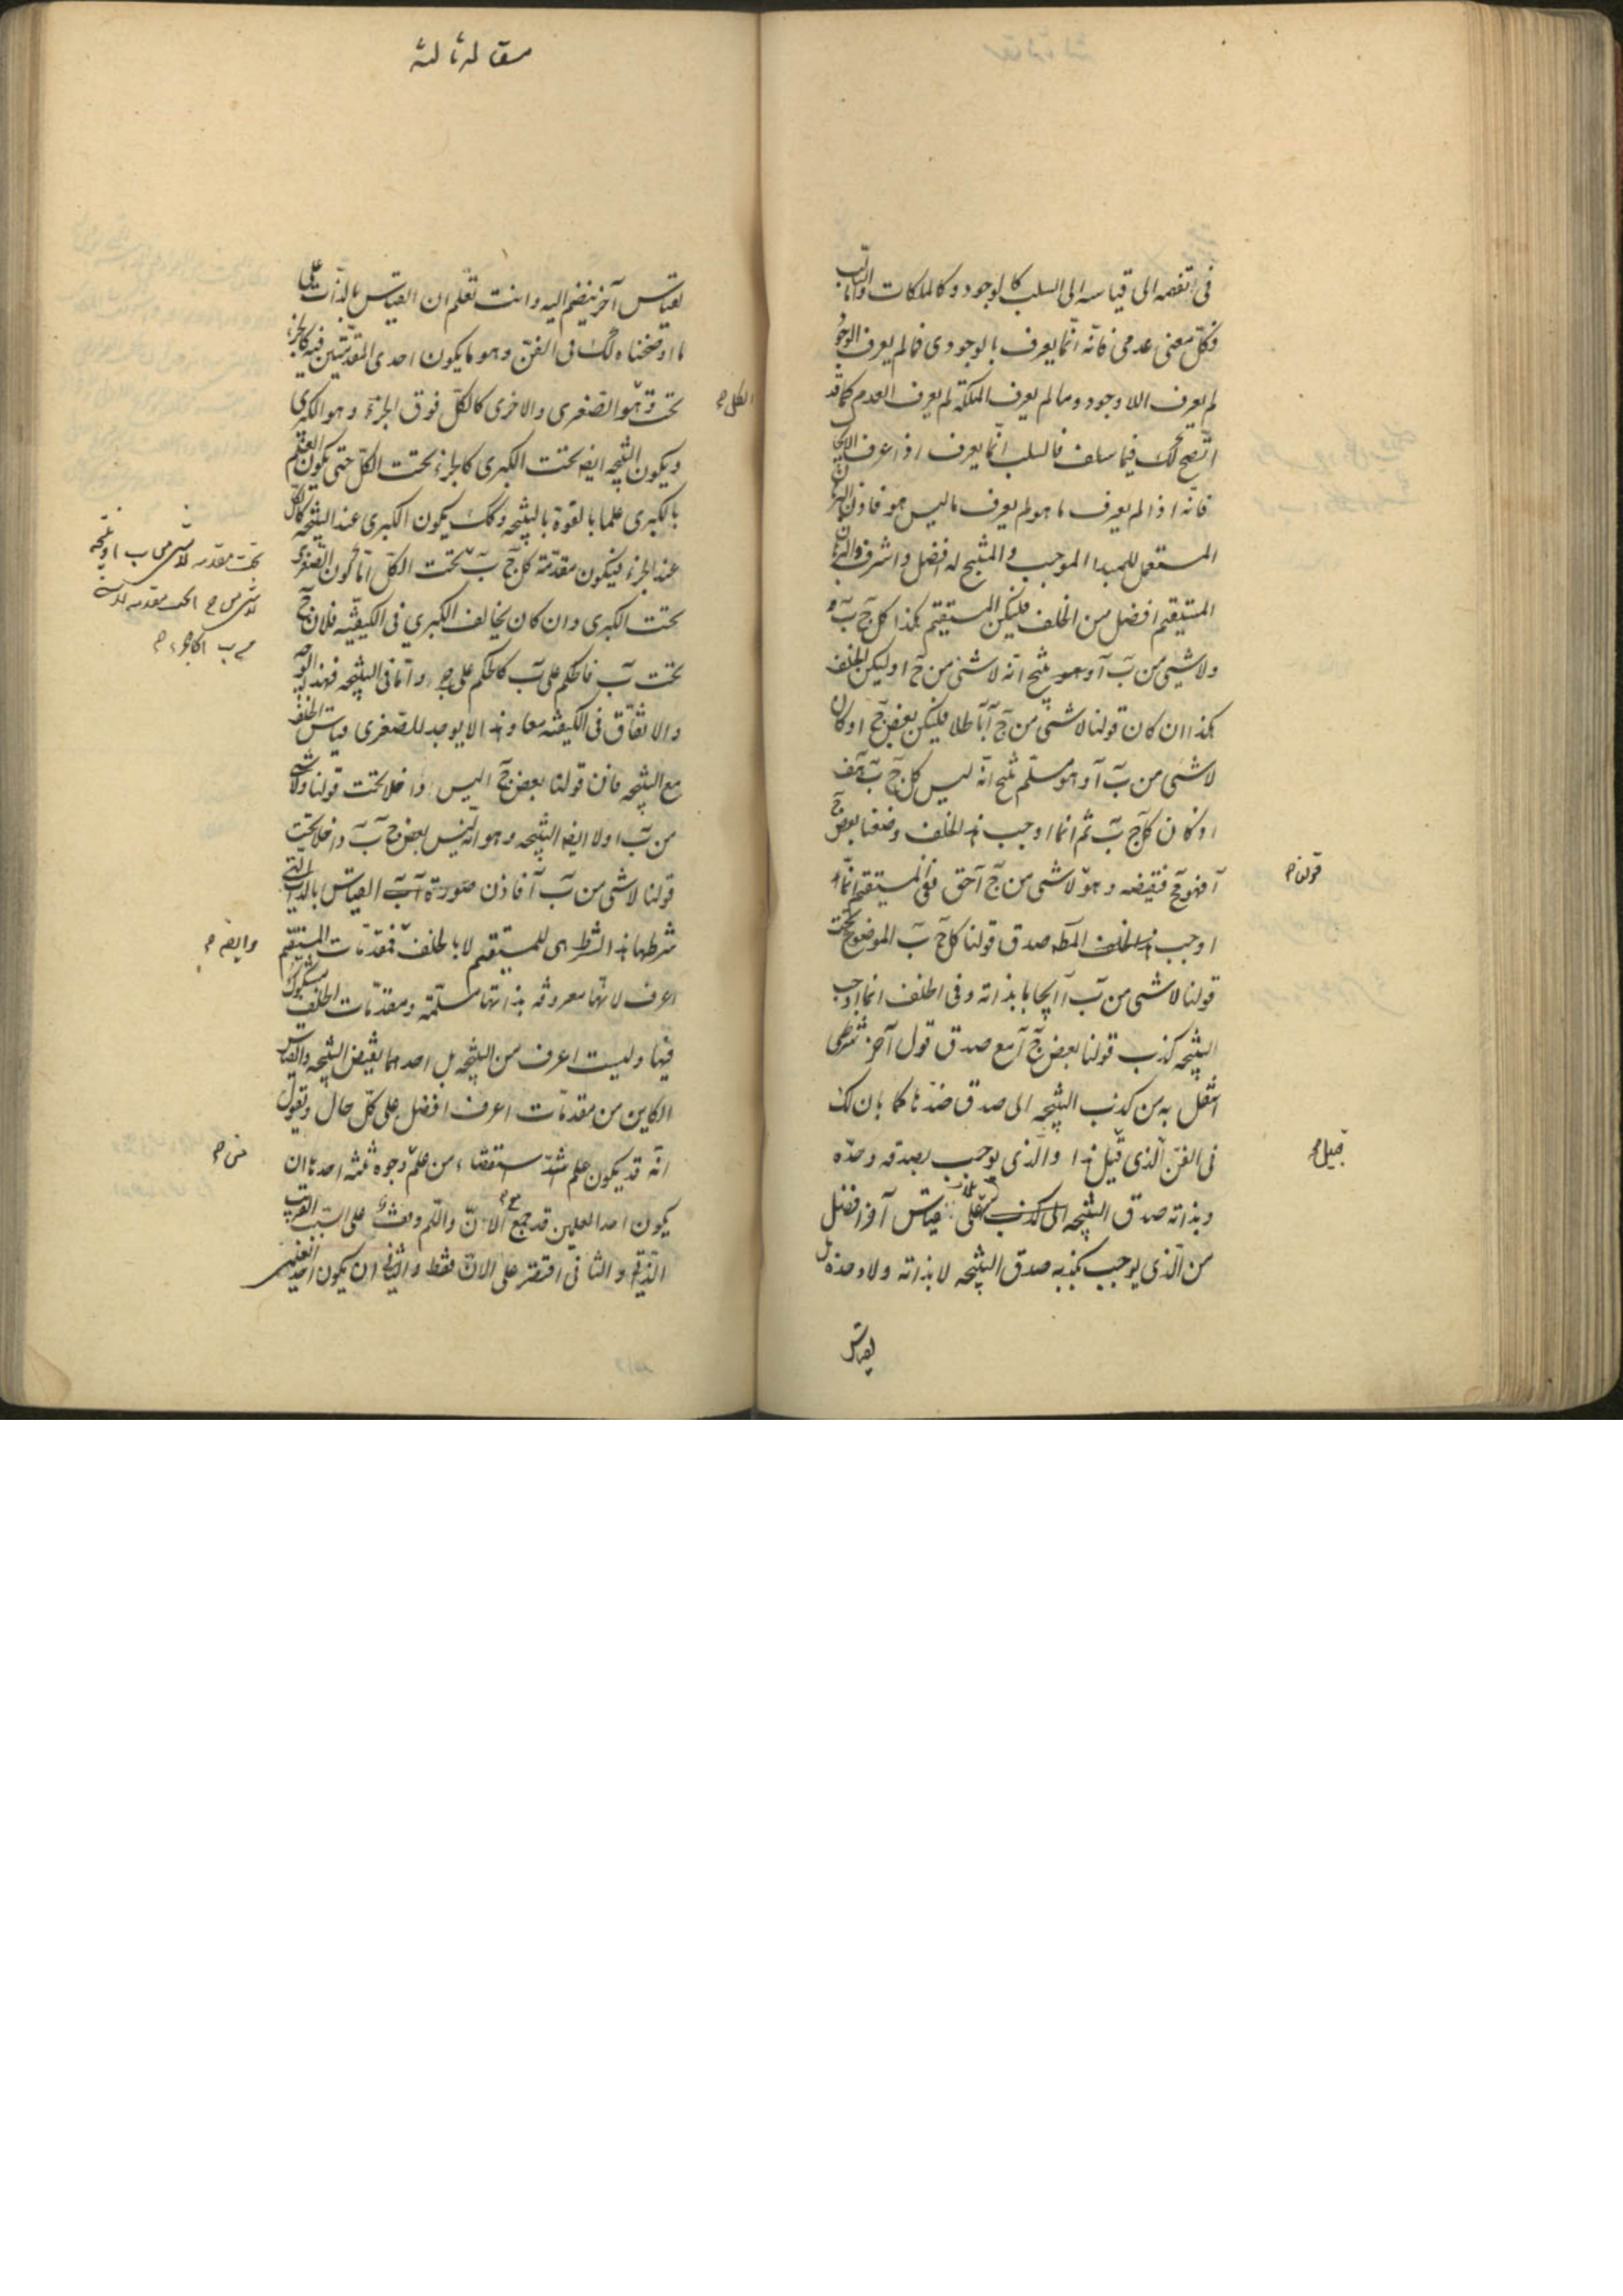 في انقصه الى قياسه الى السلب كالوجود وكالملكات واما السلب
فكل معنى عدمي فانه انما يعرف بالوجودى فما لم يعرف الوجود
لم يعرف اللاوجود وما لم يعرف الملكة لم يعرف العدم كما قد
اتضح لك فيما سلف فالسلب انما يعرف اذا عرف الايجاب
فانه اذا لم يعرف ما هو لم يعرف ما ليس هو فاذن البرهان
المستعمل للمبدا الموجب والمنتج له افضل واشرف والبرهان
المستقيم افضل من الخلف فليكن المستقيم هكذا كل ج ب
ولا شيء من ب آ وهو ينتج انه لا شئ من ج ا وليكن الخلف
هكذا ان كان قولنا لا شئ من ج آ باطلا فليكن بعض ج ا وكان
لا شئ من ب آ وهو مسلم ينتج انه ليس كل ج ب هف
اذ كان كل ج ب ثم انما اوجب هذا الخلف وضعنا بعض ج
آ فهو نقيضه وهو لا شئ من ج آ حق ففي المستقيم انما
قولنا م
اوجب المط صدق قولنا كل ج ب الموضوع تحت
قولنا لا شئ من ب آ ايجابا بذاته وفى الخلف انما اوجب
النتيجه كذب قولنا بعض ج آ مع صدق قول آخر شرطى
انتقل به من كذب النتيجه الى صدق ضدها كما بان لك
فى الفن الذى قبل هذا والذى يوجب بصدقه وحده
قبيل م
وبذاته صدق النتيجه على قياس آخر افضل
من الذى يوجب بكذبه صدق النتيجه لا بذاته ولا وحده بل
بقياس
مقاله ثالثه
بقياس آخر ينضم اليه وانت تعلم ان القياس بالذات على
ما اوضحناه لك فى الفن وهو ما يكون احدى المقدمتين فيه كالجزء
تحت وهو الصغرى والاخرى كالكل فوق الجزء وهو الكبرى
الكل م
ويكون النتيجه ايضا تحت الكبرى كالجزء تحت الكل حتى يكون العلم
بالكبرى علما بالقوة بالنتيجه وكك يكون الكبرى عند النتيجه كالكل
عند الجزء فيكون مقدمة كل ج ب تحت الكل اما كون الصغرى
تحت مقدمه لا شى من ب ا ونتيجه
لا شى من ج ا تحت مقدمه لا شى
من ب ا كالجزء م
تحت الكبرى وان كان يخالف الكبرى فى الكيفيه فلان ج
تحت ب فالحكم على ب كالحكم على ج واما فى النتيجه فهذا الوجه
والاتفاق فى الكيفيه معا وهذا لا يوجد للصغرى قياس الخلف
مع النتيجه فان قولنا بعض ج ا ليس داخلا تحت قولنا ولا شى
من ب ا ولا ايضا النتيجه وهو انه ليس بعض ج ب داخلا تحت
قولنا لا شى من ب آ فاذن صورة القياس بالذات التى
شرطها هذا الشرط هى للمستقيم لا بالخلف فمقدمات المستقيم
وايضا م
اعرف لانها معروفه بذاتها مسلمه ومقدمات الخلف مشكوك
فيها وليست اعرف من النتيجه بل احدهما نقيض النتيجه والقياس
الكاين من مقدمات اعرف افضل على كل حال ونقول
انه قد يكون علم اشد استقصاء من علم وجوه ثلثه احدها ان
من م
يكون احد العلمين قد جمع الان واللم ووقف على السبب القريب
الذى والثانى اقتصر على الان فقط والثانى ان يكون احد العلمين